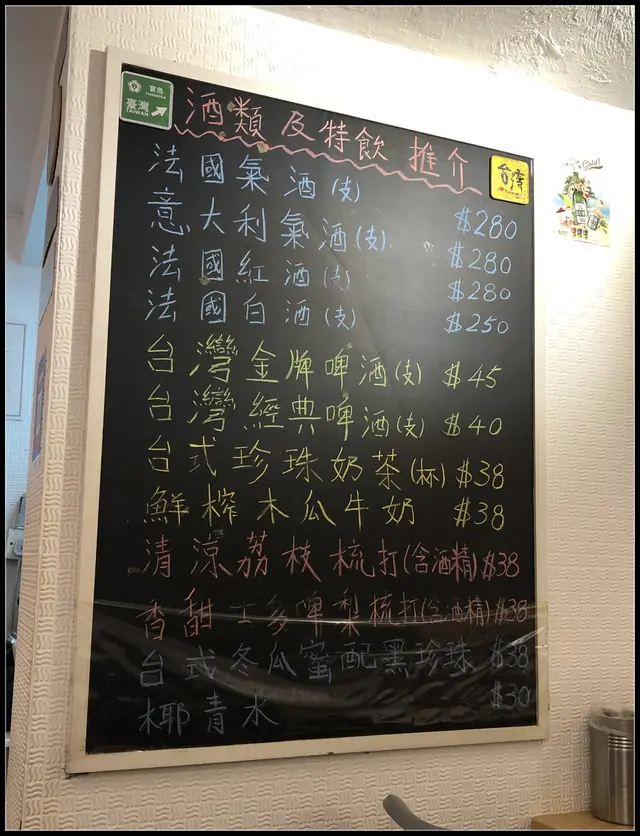 寶島
FORMOSA
臺灣
TAIWAN
酒類及特飲推介
台灣
法國氣酒(支) $280
意大利氣酒(支) $280
法國紅酒(支) $280
法國白酒(支) $250
台灣金牌啤酒(支) $45
台灣經典啤酒(支) $40
台式珍珠奶茶(杯) $38
鮮榨木瓜牛奶 $38
清涼荔枝梳打(含酒精) $38
香甜士多啤梨梳打(含酒精) $38
台式冬瓜蜜配黑珍珠 $38
椰青水 $30
Gold!